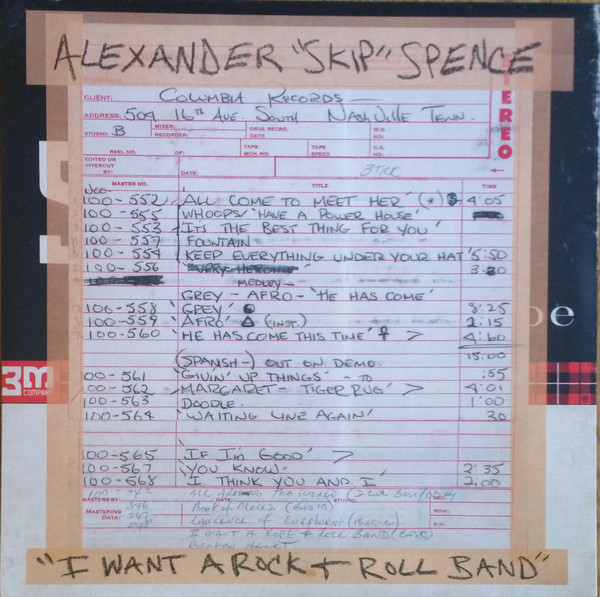 ALEXANDER "SKIP" SPENCE
CLIENT: COLUMBIA RECORDS —
ADDRESS: 504 16TH AVE. SOUTH NASHVILLE TENN.
STUDIO: B MIXER: RECORDER: ORIG. RECRD. DATE: W.O. NO:
REEL NO. OF: TAPE MCH. NO. TAPE SPEED W.O. NO:
STEREO
EDITED OR INTERCUT BY: DATE: 3TRK
MASTER NO. TITLE TIME
NCO-
100-552 'ALL COME TO MEET HER' (*) 4:05
100-555 WHOOPS 'HAVE A POWER HOUSE'
100-553 'ITS THE BEST THING FOR YOU'
100-557 FOUNTAIN
100-554 KEEP EVERYTHING UNDER YOUR HAT' 5:50
100-556 "FURRY HEROINE" 3:20
MEDLEY-
GREY - AFRO - 'HE HAS COME'
100-558 'GREY' 8:25
100-559 'AFRO' Δ (INST.) 2:15
100-560 'HE HAS COME THIS TIME' ☥ > 4:60
15:00
(SPANISH-) OUT ON DEMO.
00-561 'GIVIN' UP THINGS' - TO :55
00-562 'MARGARET - TIGER RUG' > 4:01
100-563 DOODLE. 1:00
100-564 'WAITING LINE AGAIN' 20
100-565 'IF I'M GOOD' >
100-567 'YOU KNOW' 2:35
100-568 'I THINK YOU AND I' 2:00
MASTERED BY: DATE: STUDIO:
MASTERING DATA:
546 BOOK OF MOSES (BASIC)
547 LAWRENCE OF EUPHORIA (BASIC)
548 I WANT A ROCK & ROLL BAND (BASIC)
BROKEN HEART
3M
COMPANY
oe
"I WANT A ROCK + ROLL BAND"